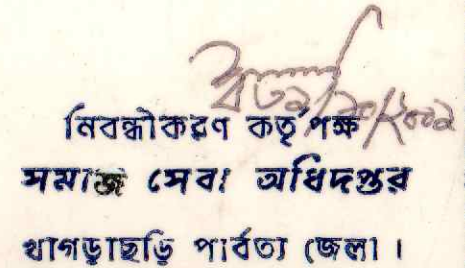 নিবন্ধীকরণ কর্তৃপক্ষ
সমাজ সেবা অধিদপ্তর
খাগড়াছড়ি পার্বত্য জেলা।